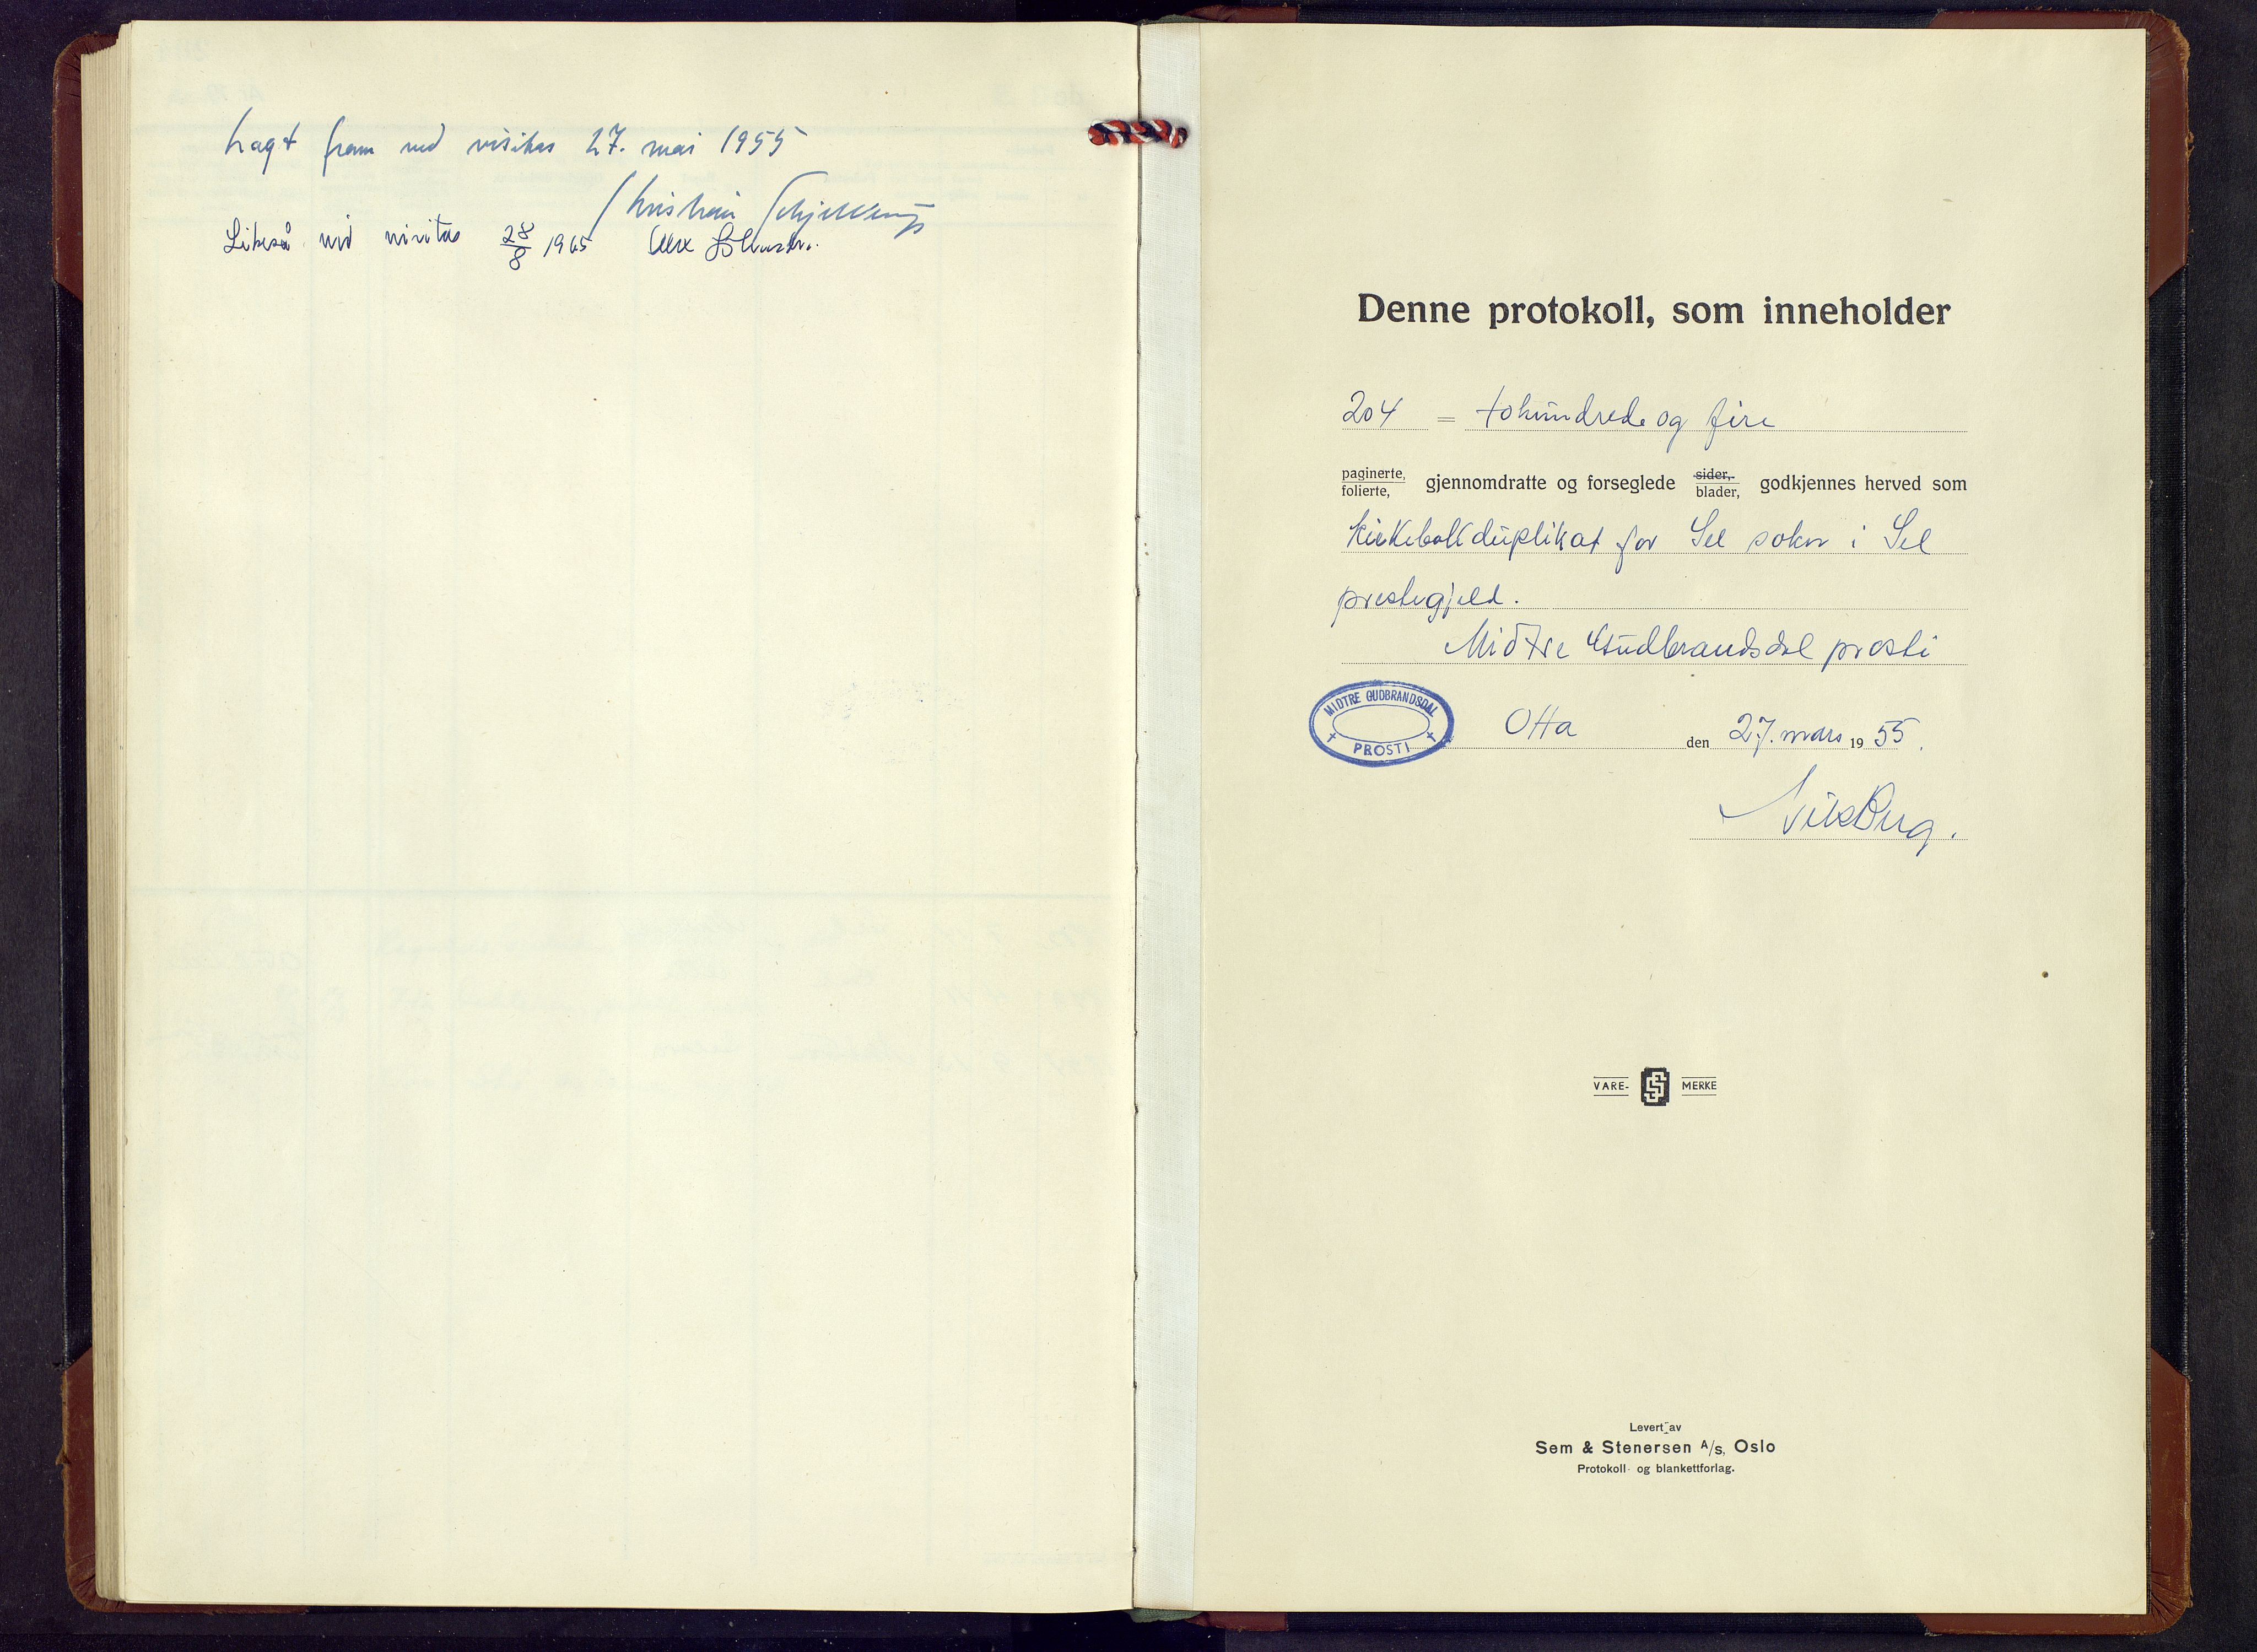 Lagt fram ved visitas 27. mai 1955
Kristian Schjelderup
Likeså ved visitas 28/8 1965 Alex Johnson.
Denne protokoll, som inneholder
204 = tohundrede og fire
paginerte,
folierte, gjennomdratte og forseglede sider, blader, godkjennes herved som
kirkebokduplikat for Sel sokn i Sel
prestegjeld.
Midtre Gudbrandsdal prosti
MIDTRE GUDBRANDSDAL
PROSTI
Otta den 27. mars 1955.
Nils Berg.
VARE- MERKE
Levert av
Sem & Stenersen A/s, Oslo
Protokoll- og blankettforlag.